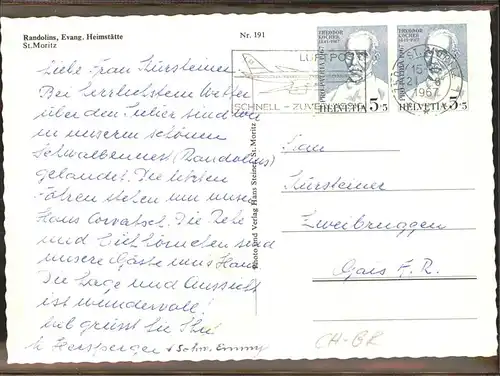 Randolins, Evang. Heimstätte
St. Moritz
Nr. 191
Liebe Frau Kürsteiner
Bei herrlichstem Wetter
über den Julier sind wir
in unserem schönen
Schwalbennest (Randolins)
gelandet. Die letzten
Föhren stehen um unser
Haus Corvatsch. Die Rehe
und Eichhörnchen sind
unsere Gäste ums Haus
Die Lage und Aussicht
ist wundervoll!
grüsst Sie Ihre
Hersperger + Schw. Emmy
Photo und Verlag Hans Steiner, St. Moritz
LUFTPO
SCHNELL - ZUVE
PRO PATRIA 1967
THEODOR
KOCHER
1841-1917
HELVETIA 5+5
PRO PATRIA 1967
THEODOR
KOCHER
1841-1917
HELVETIA 5+5
1967
Frau
Kürsteiner
Zweibruggen
Gais A. R.
CH-GR